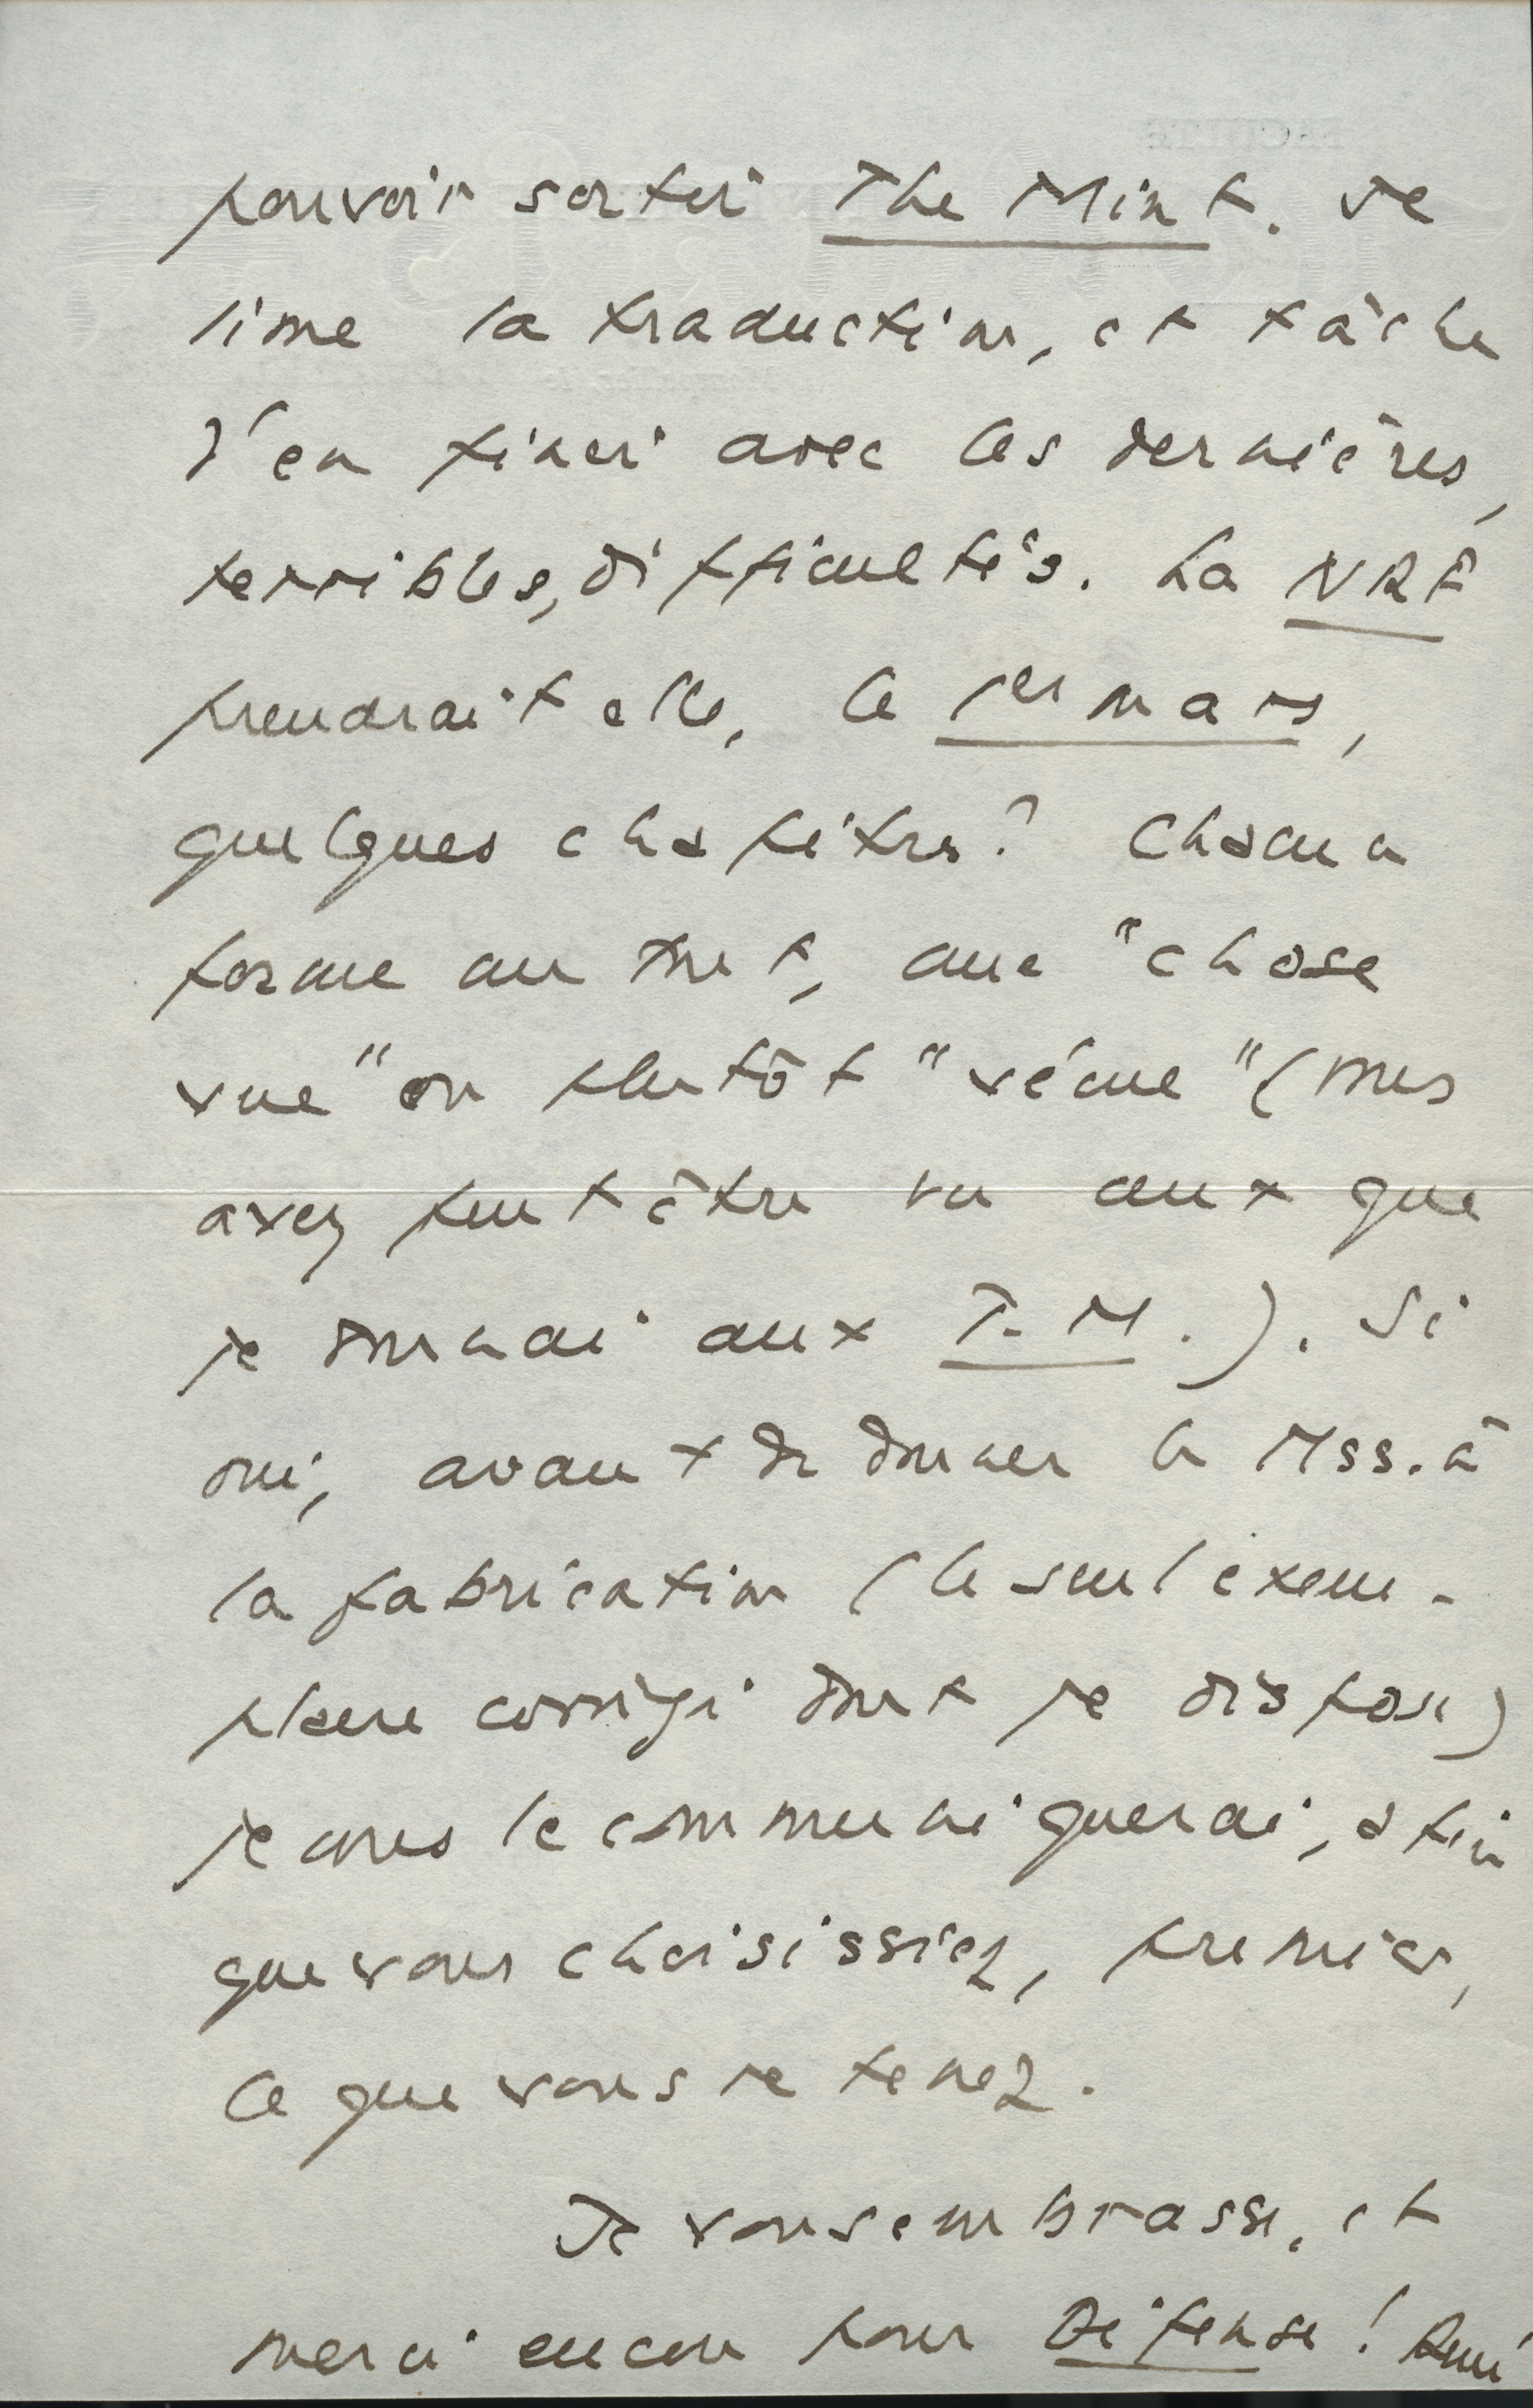 pouvoir sortir The Mint. Je
lime la traduction, et tâche
d'en finir avec les dernières,
terribles, difficultés. La NRF
prendrait elle, le 1er mars,
quelques chapitres? Chacun
forme un tout, une "chose
vue" ou plutôt "vécue" (vous
avez peut être vu ceux que
je donnai aux T.M.). Si
oui, avant de donner le Mss. à
la fabrication (le seul exem-
plaire corrigé dont je dispose)
je vous le communiquerai, afin
que vous choisissiez, premier,
ce que vous retenez.
Je vous embrasse, et
merci encore pour Défense!